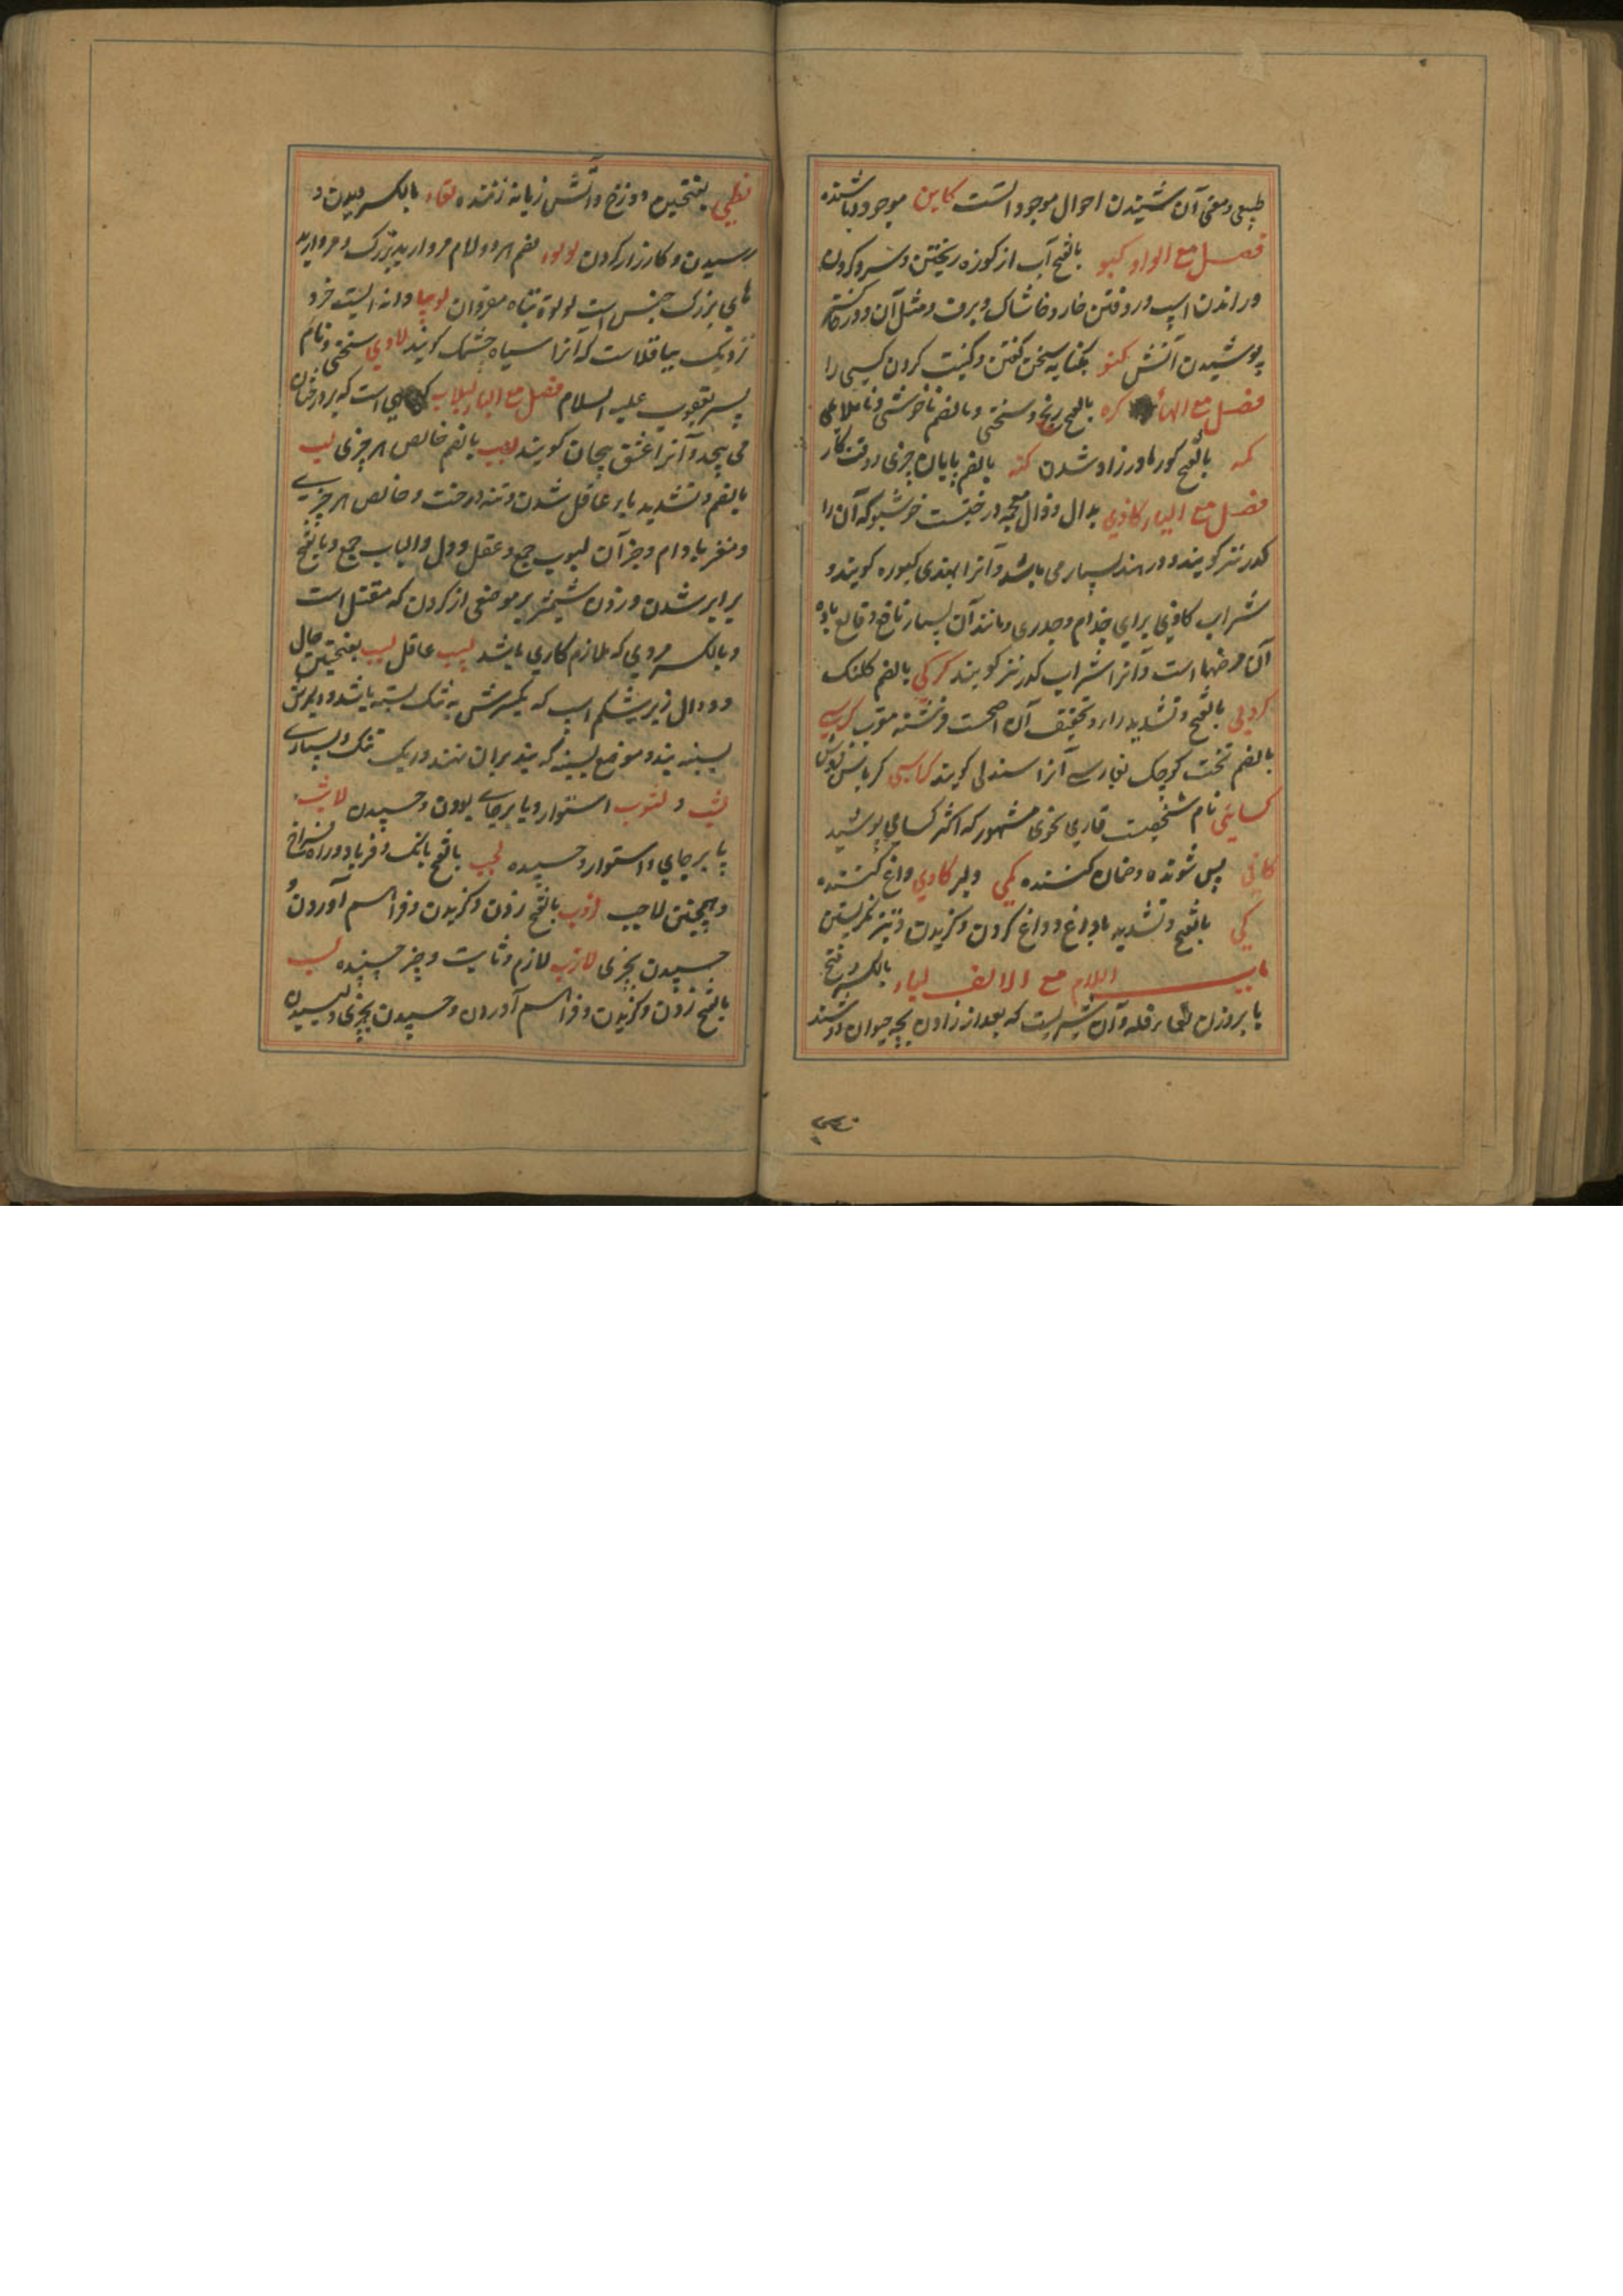 طبیعی و معنی آن شنیدن احوال موجود است کاین موجود و باشنده
فصل مع الواو کبو بالفتح آب از کوزه ریختن و سرو کردن
و راندن اسپ و روفتن خار و خاشاک و برف و مثل آن و در خاکستر
پوشیدن آتش کنو بکنایه سخن گفتن و کنیت کردن کسی را
فصل مع الهاء کره بالفتح رنج و سختی و بالضم ناخوشی و ناملایمی
کمه بالفتح کور مادرزاد شدن کنه بالضم پایان چیزی و وقت کار
فصل مع الیاء کاذی بدال و ذال معجمه درختیست خوشبو که آن را
کدر نیز گویند و در هند بسیار می باشد و آنرا بهندی کیوره گویند و
شراب کاذی برای جذام و جدری و مانند آن بسیار نافع و قالع ماده
آن مرضها است و آنرا شراب کدر نیز گویند کرکی بالضم کلنک
کروبی بالفتح و تشدید را و تخفیف آن اصحست فرشته مقرب کرسی
بالضم تخت کوچک بفارسی آنرا سندلی گویند کرابیسی کرباس فروش
کسایی نام شخصیت قاری نحوی مشهور که اکثر کسا می پوشید
کافی بس شونده و ضمان کننده کمی دلیر کاوی داغ کننده
کی بالفتح و تشدید یا داغ و داغ کردن و گزیدن و تیز نگریستن
باب اللام مع الالف لباء بالکسر و فتح
با بروزن فله و آن شیریست که بعد از زادن بچه حیوان دوشند
لظی بفتحین دوزخ و آتش زبانه زننده لقاء بالکسر دیدن و
رسیدن و کارزار کردن لولوء بضم هر دو لام مروارید بزرک و مروارید
های بزرک جنس است لولوة بتاء مفرد آن لوبیا دانه ایست خرد
نزدیک بباقلاست که آنرا سیاه چشمک گویند لاوی سختی و نام
پسر یعقوب علیه السلام فصل مع الباء لبلاب کیاهی است که بر درختان
می پیچد و آنرا عشق پیچان گویند لباب بالضم خالص هر چیزی لب
بالضم و تشدید با عاقل شدن و تنه درخت و خالص هر چیزی
و مغز بادام و جز آن لبوب جمع و عقل و دل و الباب جمع و بالفتح
برابر شدن و زدن شمشیر بر موضعی از گردن که مقتل است
و بالکسر مردی که ملازم کاری باشد لبیب عاقل لبب بفتحتین حال
و دوال زیر شکم اسب که یکسرش به تنک بسته باشد و دیگرش
بسینه بند و موضع سینه که بند بران نهند و ریک تنک و بسیاری
لتب و لتوب استوار و پا برجای بودن و چسپیدن لاتب
پا برجای و استوار و چسپیده لجب بالفتح بانک و فریاد و راه فراخ
و همچنین لاحب لزب بالفتح زدن و گزیدن و فراهم آوردن و
چسپیدن بچیزی لازب لازم و ثابت و چیز چسپنده لسب
بالفتح زدن و گزیدن و فراهم آوردن و چسپیدن بچیزی و لیسیدن